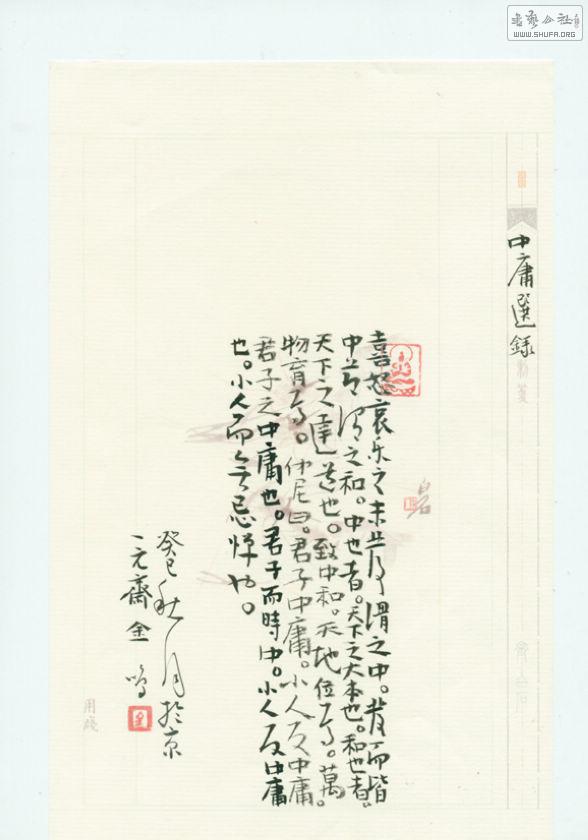 書藝公社
WWW.SHUFA.ORG
中庸選録
喜怒哀乐之未發謂之中。發而皆
中节謂之和。中也者。天下之大本也。和也者。
天下之達道也。致中和。天地位焉。萬。
物育焉。仲尼曰。君子中庸。小人反中庸
君子之中庸也。君子而時中。小人反中庸
也。小人而無忌惮也。
癸巳秋月於京
一元齋金鸣
用箋